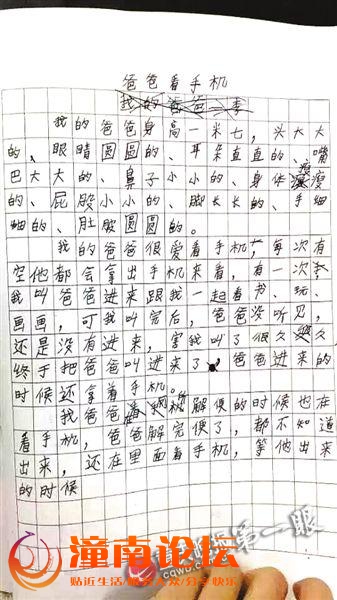 爸爸看手机
我的爸爸一季
我的爸爸身高一米七，头大大
的、眼睛圆圆的、耳朵直直的、嘴
巴大大的、鼻子小小的、身体瘦瘦
的、屁股小小的、脚长长的、手细
细的、肚股圆圆的。
我的爸爸很爱看手机，每次有
空他都会拿出手机来看，有一次，
我叫爸爸进来跟我一起看书、玩、
画画，可我叫完后，爸爸没听见，
还是没有进来，害我叫了很久很久
终于把爸爸叫进来了。爸爸进来的
时候还拿着手机。
我爸爸解便的时候也在
看手机，爸爸解完便了，都不知道
出来，还在里面看手机，等他出来
的时候
第一眼
cqwu.net
潼南论坛
贴近生活/服务大众/分享快乐